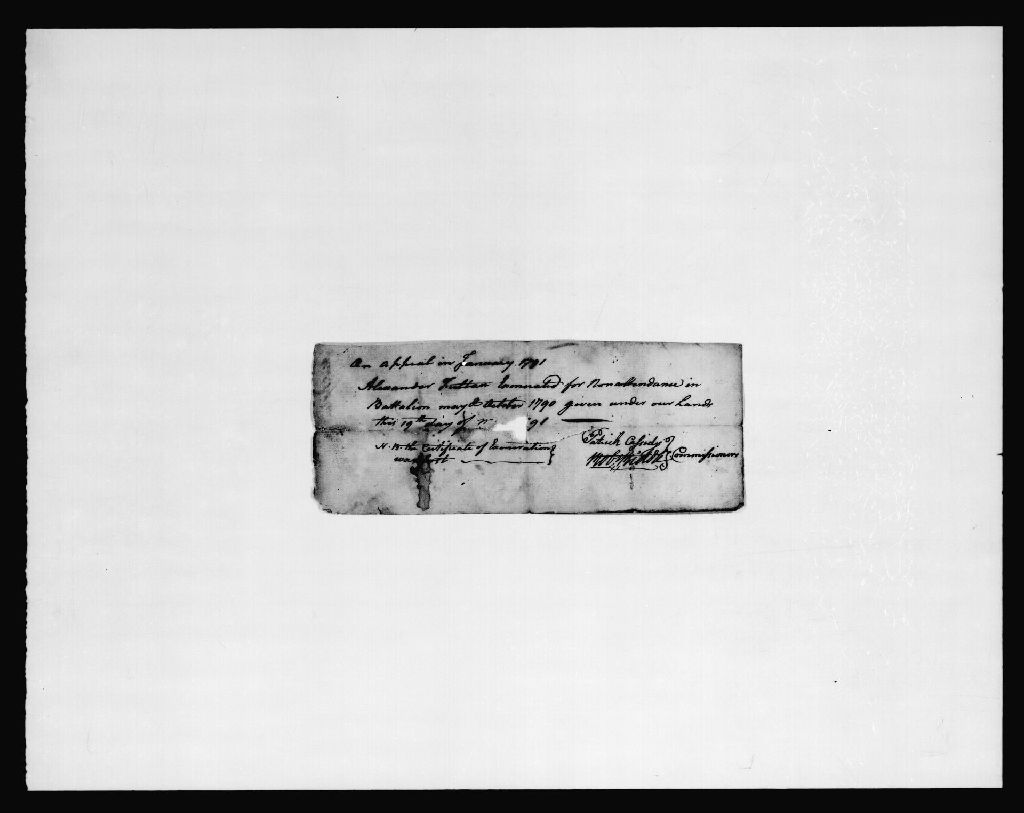 An appeal in January 1791
Alexander Exonerated for Nonattendance in
Battalion may & October 1790 given under our hands
this 19th day of 91
N. B. the Certificate of Exoneration
was lost
Patrick Cassidy
Commissioners